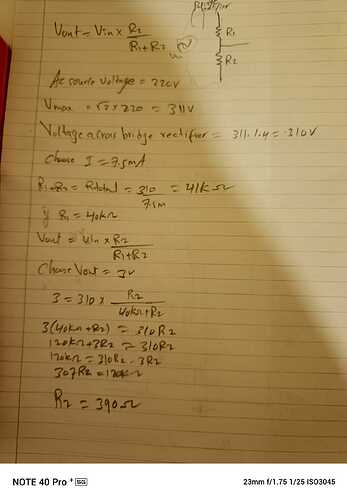 R1
Vout = Vin x R2 / R1 + R2
R2
Ac source Voltage = 220V
Vmax = √2 x 220 = 311V
Voltage across bridge rectifier = 311-1.4 = 310V
Choose I = 7.5mA
R1+R2 = Rtotal = 310 / 7.5m = 41kΩ
if R1 = 40kΩ
Vout = Vin x R2 / R1 + R2
Choose Vout = 3V
3 = 310 x R2 / 40kΩ+R2
3(40kΩ+R2) = 310R2
120kΩ+3R2 = 310R2
120kΩ = 310R2 - 3R2
307R2 = 120kΩ
R2 = 390Ω
NOTE 40 Pro+ 5G
23mm f/1.75 1/25 ISO3045